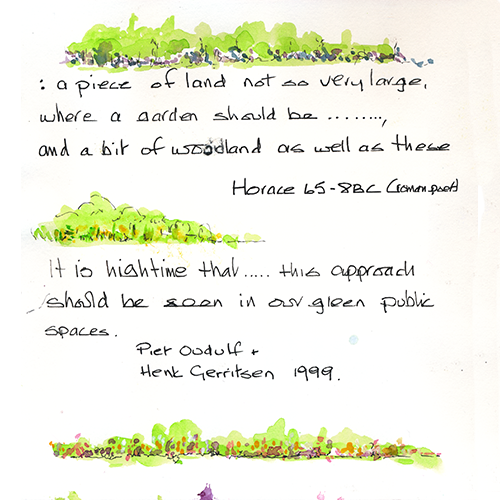 : a piece of land not so very large,
where a garden should be ........,
and a bit of woodland as well as these
Horace 65-8BC (roman poet)
It is hightime that..... this approach
should be seen in our green public
spaces.
Piet Oudulf +
Henk Gerritsen 1999.